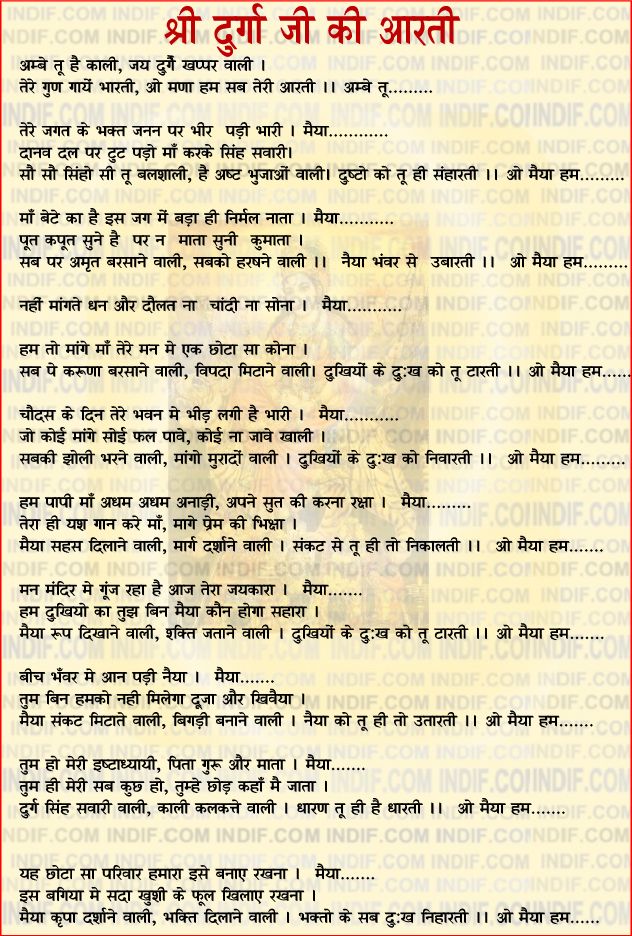 श्री दुर्गा जी की आरती
अम्बे तू है काली, जय दुर्गे खप्पर वाली ।
तेरे गुण गायें भारती, ओ मणा हम सब तेरी आरती ।। अम्बे तू.........
तेरे जगत के भक्त जनन पर भीर पड़ी भारी । मैया............
दानव दल पर टुट पड़ो माँ करके सिंह सवारी।
सौ सौ सिंहो सी तू बलशाली, है अष्ट भुजाओं वाली। दुष्टो को तू ही संहारती ।। ओ मैया हम.........
माँ बेटे का है इस जग में बड़ा ही निर्मल नाता । मैया...........
पूत कपूत सुने है पर न माता सुनी कुमाता ।
सब पर अमृत बरसाने वाली, सबको हरषने वाली ।। नैया भंवर से उबारती ।। ओ मैया हम.........
नहीं मांगते धन और दौलत ना चांदी ना सोना । मैया...........
हम तो मांगे माँ तेरे मन मे एक छोटा सा कोना ।
सब पे करूणा बरसाने वाली, विपदा मिटाने वाली। दुखियों के दु:ख को तू टारती ।। ओ मैया हम......
चौदस के दिन तेरे भवन मे भीड़ लगी है भारी । मैया...........
जो कोई मांगे सोई फल पावे, कोई ना जावे खाली ।
सबकी झोली भरने वाली, मांगो मुरादों वाली । दुखियों के दु:ख को निवारती ।। ओ मैया हम.........
हम पापी माँ अधम अधम अनाड़ी, अपने सुत की करना रक्षा । मैया.........
तेरा ही यश गान करे माँ, मागे प्रेम की भिक्षा ।
मैया सहस दिलाने वाली, मार्ग दर्शाने वाली । संकट से तू ही तो निकालती ।। ओ मैया हम.......
मन मंदिर मे गूंज रहा है आज तेरा जयकारा । मैया.......
हम दुखियो का तुझ बिन मैया कौन होगा सहारा ।
मैया रूप दिखाने वाली, शक्ति जताने वाली । दुखियों के दु:ख को तू टारती ।। ओ मैया हम.......
बीच भँवर मे आन पड़ी नैया । मैया.......
तुम बिन हमको नही मिलेगा दूजा और खिवैया ।
मैया संकट मिटाते वाली, बिगड़ी बनाने वाली । नैया को तू ही तो उतारती ।। ओ मैया हम.......
तुम हो मेरी इष्टाध्यायी, पिता गुरू और माता । मैया.......
तुम ही मेरी सब कुछ हो, तुम्हे छोड़ कहाँ मै जाता ।
दुर्ग सिंह सवारी वाली, काली कलकत्ते वाली । धारण तू ही है धारती ।। ओ मैया हम.......
यह छोटा सा परिवार हमारा इसे बनाए रखना । मैया.......
इस बगिया मे सदा खुशी के फूल खिलाए रखना ।
मैया कृपा दर्शाने वाली, भक्ति दिलाने वाली । भक्तो के सब दु:ख निहारती ।। ओ मैया हम......